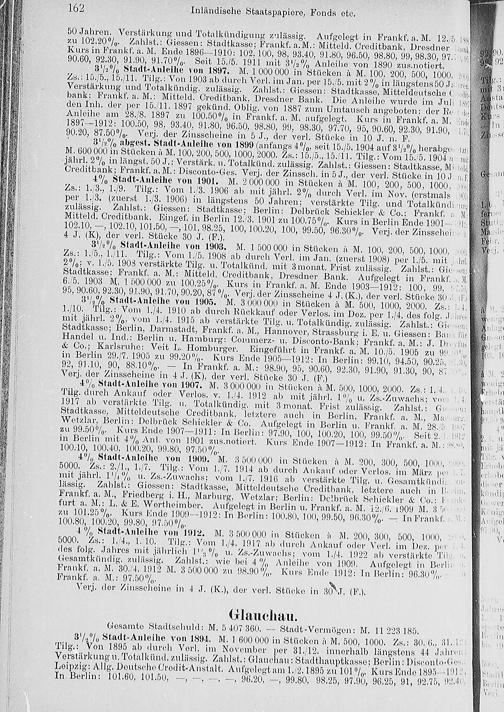 162 Inländische Staatspapiere, Fonds etc.
50 Jahren. Verstärkung und Totalkündigung zulässig. Aufgelegt in Frankf. a. M. 12./5.
zu 102.20%. Zahlst.: Giessen: Stadtkasse; Frankf. a. M.: Mitteld. Creditbank, Dresdner
Kurs in Frankf. a. M. Ende 1896—1910: 102, 100, 98, 93.40, 91.80, 96.50, 98.80, 99, 98.30, 97.
90.60, 92.30, 91.90, 91.70%. Seit 15./5. 1911 mit 3½% Anleihe von 1890 zus.notiert.
3½% Stadt-Anleihe von 1897. M. 1 000 000 in Stücken à M. 100, 200, 500, 1000,
Zs.: 15./5., 15./11. Tilg.: Von 1903 ab durch Verl. im Jan. per 15./5. mit 2% in längstens 50 J.
Verstärkung und Totalkündig. zulässig. Zahlst.: Giessen: Stadtkasse, Mitteldeutsche
bank; Frankf. a. M.: Mitteld. Creditbank, Dresdner Bank. Die Anleihe wurde im Juli
den Inh. der per 15./11. 1897 gekünd. Oblig. von 1887 zum Umtausch angeboten; der
Anleihe am 28./8. 1897 zu 100.50% in Frankf. a. M. aufgelegt. Kurs in Frankf. a. M.
1897—1912: 100.50, 98, 93.40, 91.80, 96.50, 98.80, 99, 98.30, 97.70, 95, 90.60, 92.30, 91.90,
90.20, 87.50%. Verj. der Zinsscheine in 5 J., der verl. Stücke in 10 J. n. F.
3½% abgest. Stadt-Anleihe von 1899 (anfangs 4%, seit 15./5. 1904 auf 3½% herabge
M. 600 000 in Stücken à M. 100, 200, 500, 1000, 2000. Zs.: 15./5., 15./11. Tilg.: Vom 15./5. 1904
jährl. 2% in längst. 50 J.: Verstärk. u. Totalkünd. zulässig. Zahlst.: Giessen: Stadtkasse,
Creditbank; Frankf. a. M.: Disconto-Ges. Verj. der Zinssch. in 5 J., der verl. Stücke in 10 J.
4% Stadt-Anleihe von 1901. M. 2 000 000 in Stücken à M. 100, 200, 500, 1000,
Zs.: 1./3., 1./9. Tilg.: Vom 1./3. 1906 ab mit jährl. 2% durch Verl. im Nov. (erstmals
per 1./3. (zuerst 1./3. 1906) in längstens 50 Jahren; verstärkte Tilg. und Totalkündi
zulässig. Zahlst.: Giessen: Stadtkasse; Berlin: Delbrück Schickler & Co.; Frankf. a.
Mitteld. Creditbank. Eingef. in Berlin 12./3. 1901 zu 100.75%. Kurs in Berlin Ende 1901—
102.10, —, 102.10, 101.50, —, 101, 98.25, 100, 100.20, 100, 99.50, 96.30%. Verj. der Zinsscheine
4 J. (K), der verl. Stücke 30 J. (F.)
3½% Stadt-Anleihe von 1903. M. 1 500 000 in Stücken à M. 100, 200, 500, 1000,
Zs.: 1./5., 1./11. Tilg.: Vom 1./5. 1908 ab durch Verl. im Jan. (zuerst 1908) per 1./5. mit
2%; v. 1./5. 1908 verstärkte Tilg. u. Totalkünd. mit 3 monat. Frist zulässig. Zahlst.:
Stadtkasse; Frankf. a. M.: Mitteld. Creditbank, Dresdner Bank. Aufgelegt in Frankf.
6./5. 1903 M. 1 500 000 zu 100.25%. Kurs in Frankf. a. M. Ende 1903—1912: 100,
95, 90.60, 92.30, 91.90, 91.70, 90.20, 87%. Verj. der Zinsscheine 4 J. (K.), der verl. Stücke 30
3½% Stadt-Anleihe von 1905. M. 3 000 000 in Stücken à M. 500, 1000, 2000. Zs.:
1./10. Tilg.: Vom 1./4. 1910 ab durch Rückkauf oder Verlos. im Dez. per 1./4. des folg.
mit jährl. 2%, vom 1./4. 1915 ab verstärkte Tilg. u. Totalkündig. zulässig. Zahlst.:
Stadtkasse; Berlin, Darmstadt, Frankf. a. M., Hannover, Strassburg i. E. u. Giessen:
Handel u. Ind.: Berlin u. Hamburg: Commerz- u. Disconto-Bank; Frankf. a. M.: J.
& Co.; Karlsruhe: Veit L. Homburger. Eingeführt in Frankf. a. M. 10./5. 1905 zu 99
in Berlin 29./7. 1905 zu 99.20%. Kurs Ende 1905—1912: In Berlin: 99.10, 94.50, 90.25,
92, 91.10, 90, 88.10%. — In Frankf. a. M.: 98.90, 95, 90.60, 92.30, 91.90, 91.30, 90,
Verj. der Zinsscheine in 4 J. (K) der verl. Stücke 30 J. (F.)
4% Stadt-Anleihe von 1907. M. 3 000 000 in Stücken à M. 500, 1000, 2000. Zs.: 1./4.
Tilg. durch Ankauf oder Verlos. v. 1./4. 1912 ab mit jährl. 1% u. Zs.-Zuwachs; vom
1917 ab verstärkte Tilg. u. Totalkündig. mit 3 monat. Frist zulässig. Zahlst.:
Stadtkasse, Mitteldeutsche Creditbank, letztere auch in Berlin, Frankf. a. M.,
Wetzlar, Berlin: Delbrück Schickler & Co. Aufgelegt in Berlin u. Frankf. a. M. 28./
zu 99.50%. Kurs Ende 1907—1911: In Berlin: 97.90, 100, 100.20, 100, 99.50%. Seit
in Berlin mit 4% Anl. von 1901 zus.notiert. Kurs Ende 1907—1912: In Frankf. a. M.:
100.10, 100.40, 100.20, 99.80, 97.50%.
4% Stadt-Anleihe von 1909. M. 3 500 000 in Stücken à M. 200, 300, 500, 1000,
5000. Zs.: 2./1., 1./7. Tilg.: Vom 1./7. 1914 ab durch Ankauf oder Verlos. im März per
mit jährl. 1½% u. Zs.-Zuwachs; vom 1./7. 1916 ab verstärkte Tilg. u. Gesamtkündi
lässig. Zahlst.: Giessen: Stadtkasse, Mitteldeutsche Creditbank, letztere auch in
Frankf. a. M., Friedberg i. H., Marburg, Wetzlar; Berlin: Delbrück Schickler & Co.;
furt a. M.: L. & E. Wertheimber. Aufgelegt in Berlin u. Frankf. a. M. 12./6. 1909 M. 3
zu 101.25%. Kurs Ende 1909—1912: In Berlin: 100.80, 100, 99.50, 96.30%. — In Frankf.
100.80, 100.20, 99.80, 97.50%.
4% Stadt-Anleihe von 1912. M. 3 500 000 in Stücken à M. 200, 300, 500, 1000,
5000. Zs.: 1./4., 1./10. Tilg.: Vom 1./4. 1917 ab durch Ankauf oder Verl. im Dez. per
des folg. Jahres mit jährlich 1½% u. Zs.-Zuwachs; vom 1./4. 1922 ab verstärkte
Gesamtkündig. zulässig. Zahlst. wie bei 4% Anleihe von 1909. Aufgelegt in Berlin
Frankf. a. M. 30./4. 1912 M. 3 500 000 zu 98.90%. Kurs Ende 1912: In Berlin: 96.30%.
Frankf. a. M.: 97.50%.
Verj. der Zinsscheine in 4 J. (K.), der verl. Stücke in 30 J. (F.)
Glauchau.
Gesamte Stadtschuld: M. 5 407 360. — Stadt-Vermögen: M. 11 223 185.
3½% Stadt-Anleihe von 1894. M. 1 600 000 in Stücken à M. 500, 1000. Zs.: 30./6., 31./
Tilg.: Von 1895 ab durch Verl. im November per 31./12. innerhalb längstens 44 Jahren
Verstärkung u. Totalkünd. zulässig. Zahlst.: Glauchau: Stadthauptkasse; Berlin: Disconto-Ges.
Leipzig: Allg. Deutsche Credit-Anstalt. Aufgelegt am 1./2. 1895 zu 101%. Kurs Ende 1895—1912
In Berlin: 101.60, 101.50, —, —, —, —, 96.20, —, 99.80, 98.25, 97.90, 96.25, 91, 92.75, 92.40